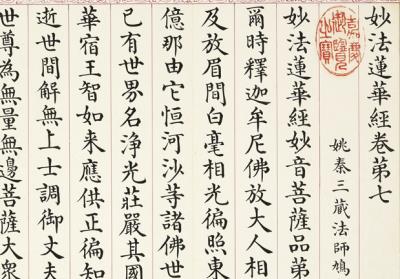 妙法蓮華經卷第七
嘉慶
御覽
之寶
姚秦三藏法師鳩
妙法蓮華經妙音菩薩品第
爾時釋迦牟尼佛放大人相
及放眉間白毫相光徧照東
億那由它恒河沙等諸佛世
已有世界名淨光莊嚴其國
華宿王智如来應供正徧知
逝世間解無上士調御丈夫
世尊為無量無邊菩薩大衆